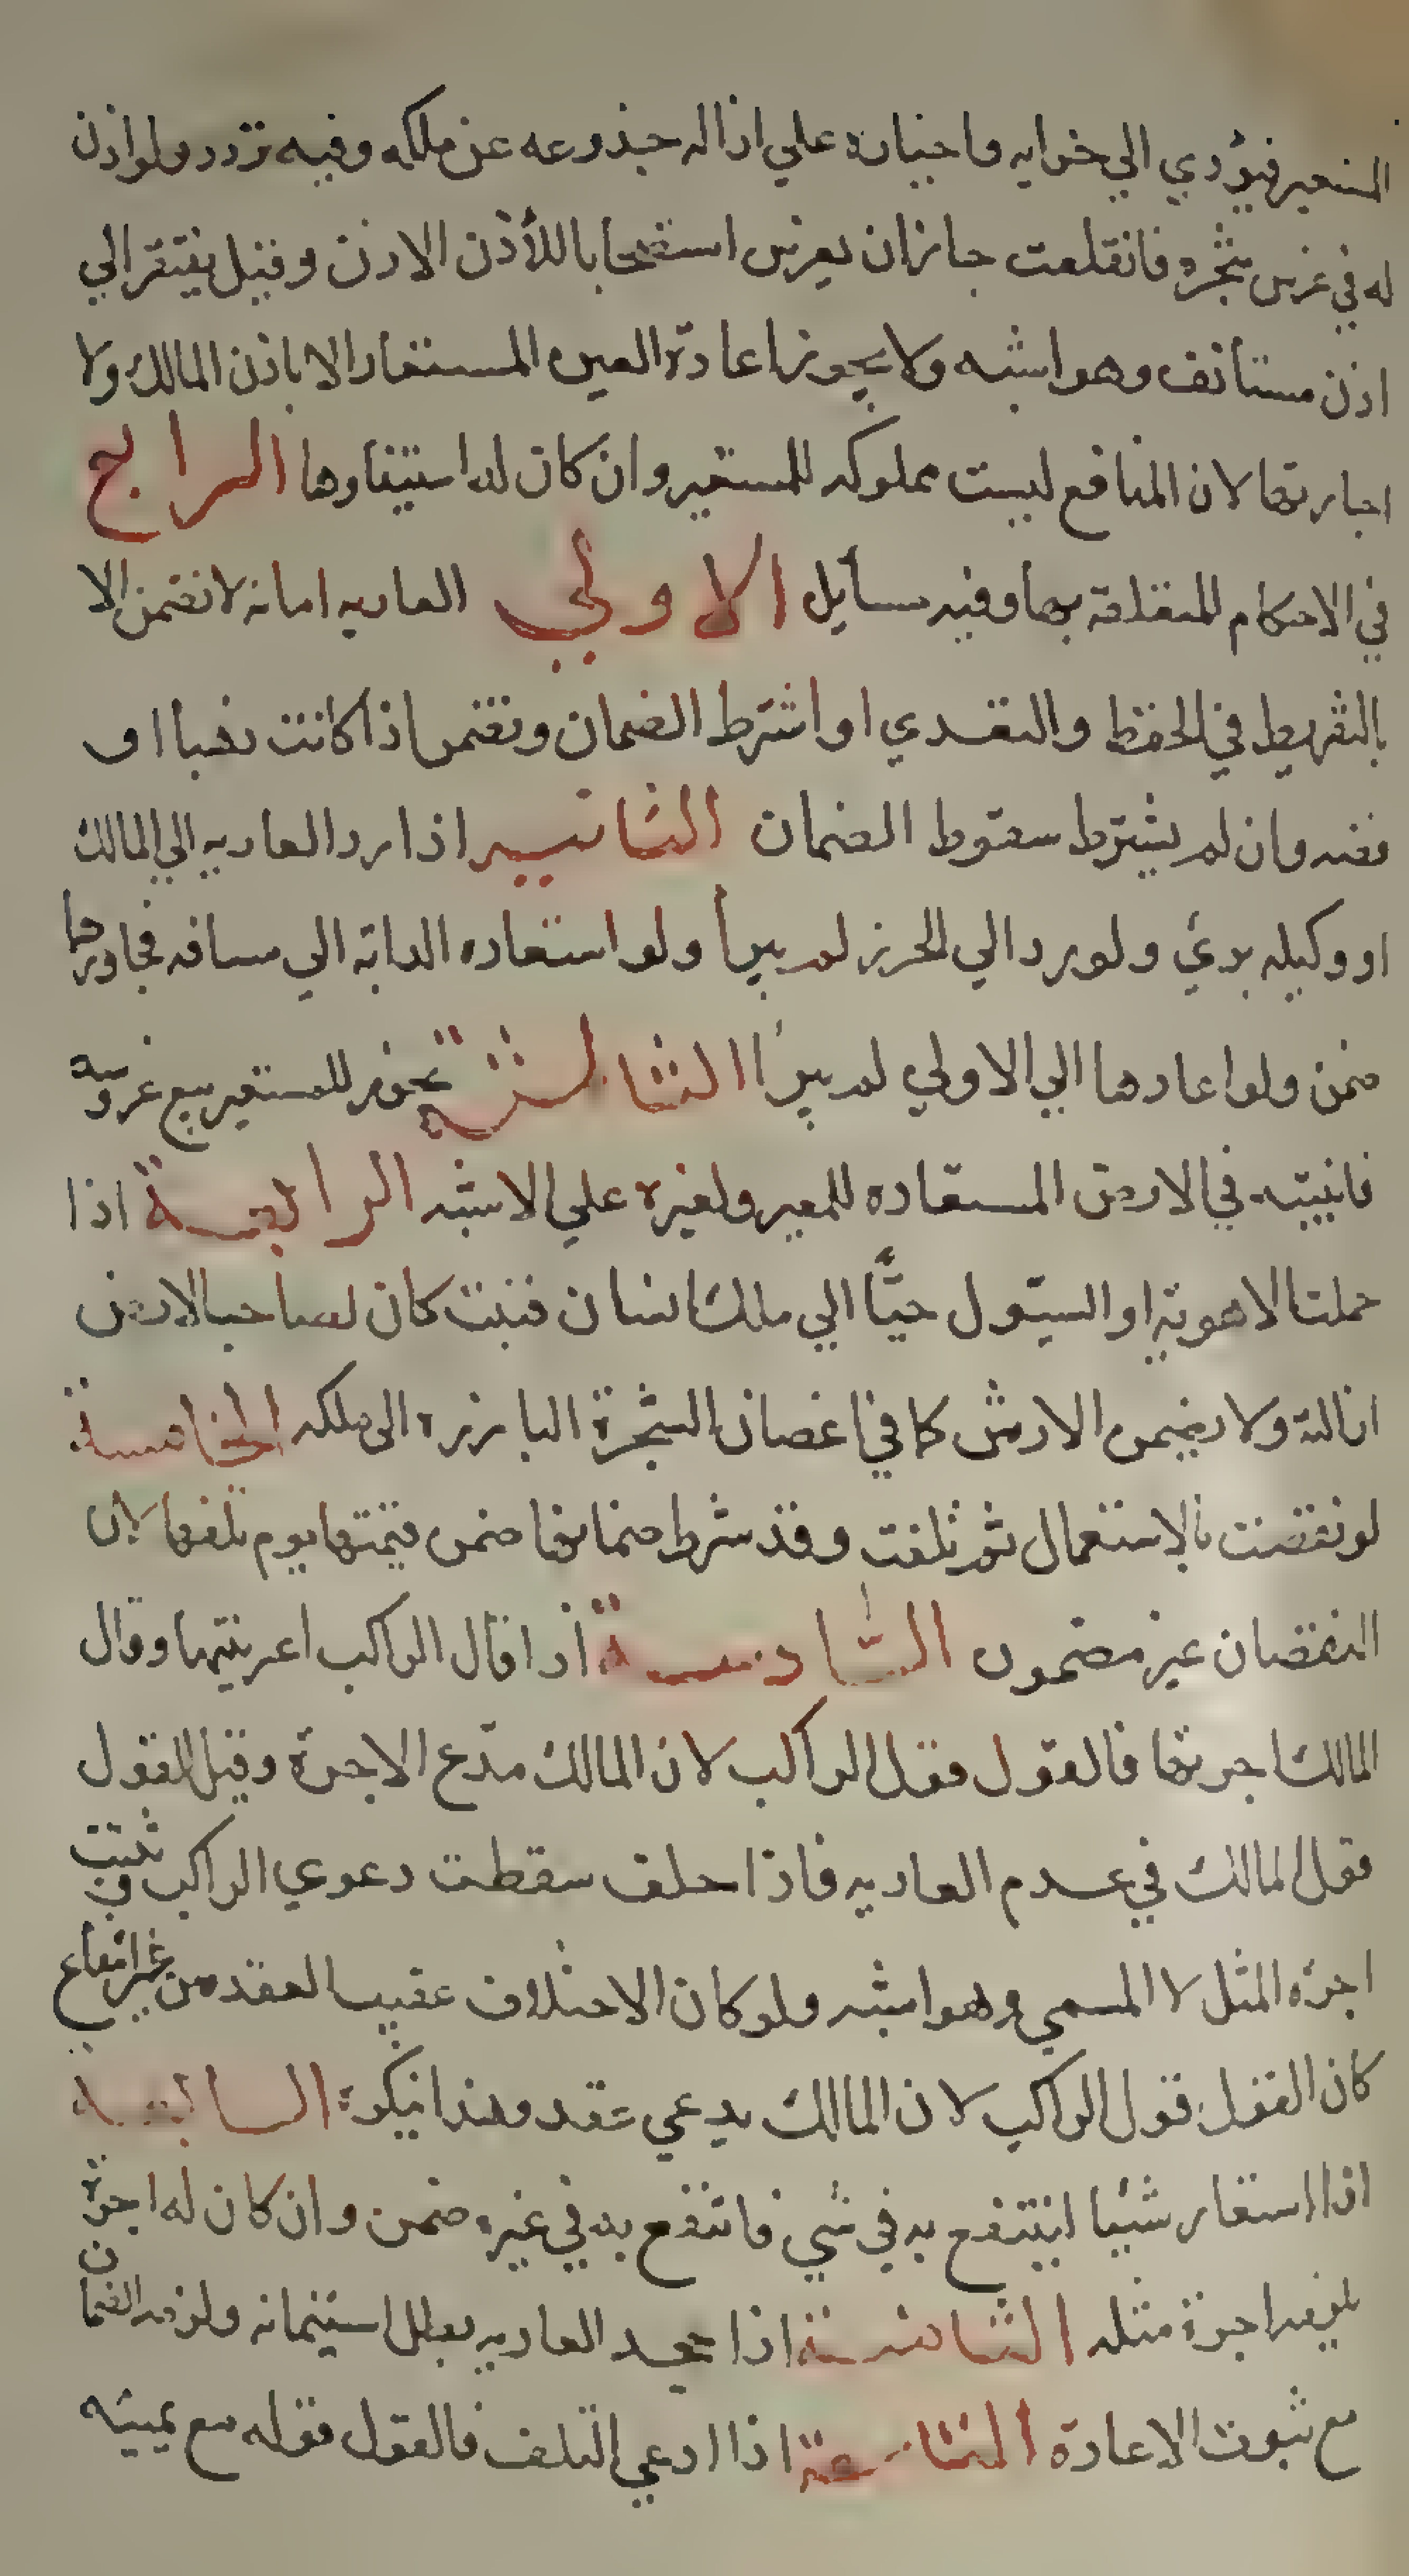 المستعير فيؤدي الي خرابه واجباره علي ازاله جذوعه عن ملكه وفيه تردد ولو اذن
له في غرس شجره فانقلعت جاز ان يغرس استصحابا للأذن الاول وقيل يفتقر الي
اذن مستانف وهو اشبه ولا يجوز اعادة العين المستعار الا باذن المالك ولا
اجارتها لان المنافع ليست مملوكه للمستعير وان كان له استيفاوها الرابع
في الاحكام المتعلقة بها وفيه مسايل الاولي العاريه امانه لا تضمن الا
بالتفريط في الحفظ والتعدي او اشترط الضمان وتضمن اذا كانت ذهبا او
فضه وان لم يشترط سقوط الضمان الثانيه اذا رد العاريه الي المالك
او وكيله بريَ ولو رد الي الحرز لم يبرأ ولو استعاره الدابة الي مسافه فجاوزها
ضمن ولو اعادها الي الاولي لم يبرأ الثالثة يجوز للمستعير بيع غروسه
وابنيته في الارض المستعاره للمعير ولغيره علي الاشبه الرابعة اذا
حملت الاهوية او السيول حبًّا الي ملك انسان فنبت كان لصاحب الارض
ازالته ولا يضمن الارش كما في اغصان الشجرة البارزه الى ملكه الخامسة
لو نقصت بالاستعمال ثم تلفت وقد شرط ضمانها ضمن قيمتها يوم تلفها لان
النقصان غير مضمون السّادسة اذا قال الراكب اعرتنيها وقال
المالك اجرتها فالقول قول الراكب لان المالك مدّع الاجرة وقيل القول
قول المالك في عدم العاريه فاذا حلف سقطت دعوي الراكب وتثبت
اجرة المثل لا المسمي وهو اشبه ولو كان الاختلاف عقيب العقد من غير انتفاع
كان القول قول الراكب لان المالك يدعي عقد وهذا ينكره السابعة
اذا استعار شيئا لينتفع به في شي فانتفع به في غيره ضمن وان كان له اجرة
يلزمه اجرة مثله الثامنة اذا جحد العاريه بطل استيمانه ولزمه الضمان
مع ثبوت الاعارة التاسعة اذا ادعي التلف فالقول قوله مع يمينه